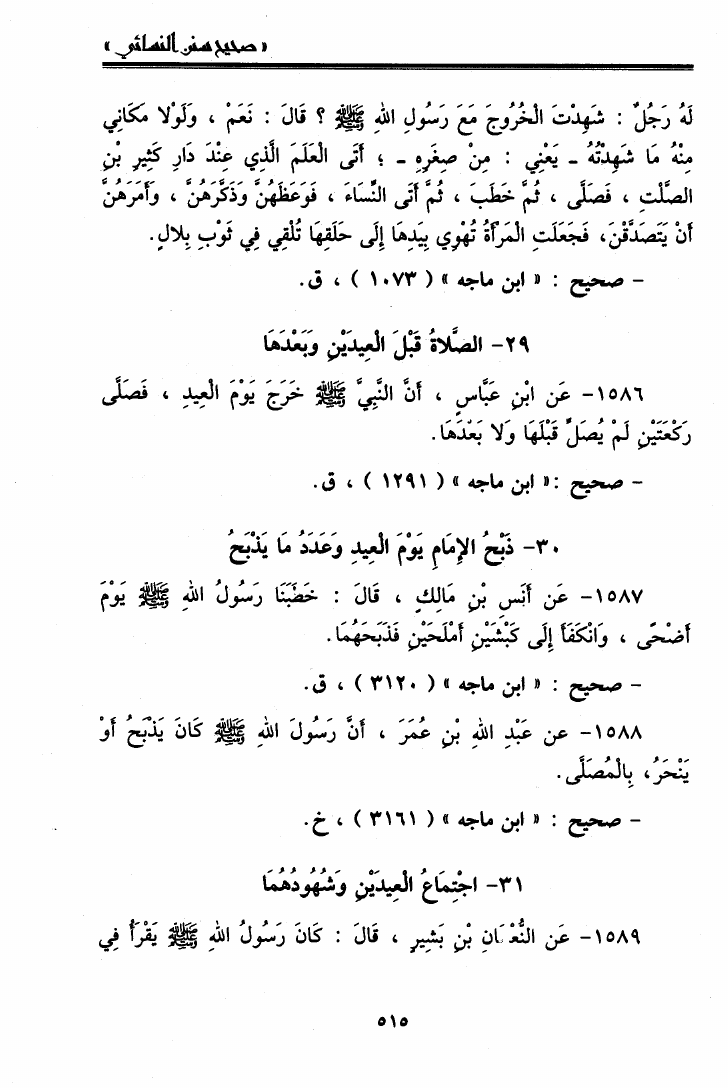 « صحيح سنن النسائي »
لَهُ رَجُلٌ : شَهِدْتَ الْخُرُوجَ مَعَ رَسُولِ اللهِ ﷺ ؟ قَالَ : نَعَمْ ، وَلَوْلا مَكَانِي
مِنْهُ مَا شَهِدْتُهُ ـ يَعْنِي : مِنْ صِغَرِهِ ـ ؛ أَتَى الْعَلَمَ الَّذِي عِنْدَ دَارِ كَثِيرِ بْنِ
الصَّلْتِ ، فَصَلَّى ، ثُمَّ خَطَبَ ، ثُمَّ أَتَى النِّسَاءَ ، فَوَعَظَهُنَّ وَذَكَّرَهُنَّ ، وَأَمَرَهُنَّ
أَنْ يَتَصَدَّقْنَ، فَجَعَلَتِ الْمَرْأَةُ تُهْوِي بِيَدِهَا إِلَى حَلَقِهَا تُلْقِي فِي ثَوْبِ بِلالٍ.
– صحيح : « ابن ماجه » ( ١٠٧٣ ) ، ق.
٢٩- الصَّلاةُ قَبْلَ الْعِيدَيْنِ وَبَعْدَهَا
١٥٨٦- عَن ابْنِ عَبَّاسٍ ، أَنَّ النَّبِيَّ ﷺ خَرَجَ يَوْمَ الْعِيدِ ، فَصَلَّى
رَكْعَتَيْنِ لَمْ يُصَلِّ قَبْلَهَا وَلا بَعْدَهَا.
– صحيح :« ابن ماجه » ( ١٢٩١ ) ، ق.
٣٠- ذَبْحُ الإِمَامِ يَوْمَ الْعِيدِ وَعَدَدُ مَا يَذْبَحُ
١٥٨٧- عَن أَنَسِ بْنِ مَالِكٍ ، قَالَ : خَطَبَنَا رَسُولُ اللهِ ﷺ يَوْمَ
أَضْحًى ، وَانْكَفَأَ إِلَى كَبْشَيْنِ أَمْلَحَيْنِ فَذَبَحَهُمَا.
– صحيح : « ابن ماجه » ( ٣١٢٠ ) ، ق.
١٥٨٨- عن عَبْدِ اللهِ بْنِ عُمَرَ ، أَنَّ رَسُولَ اللهِ ﷺ كَانَ يَذْبَحُ أَوْ
يَنْحَرُ، بِالْمُصَلَّى.
– صحيح : « ابن ماجه » ( ٣١٦١ ) ، خ.
٣١- اجْتِمَاعُ الْعِيدَيْنِ وَشُهُودُهُمَا
١٥٨٩- عَن النُّعْمَانِ بْنِ بَشِيرٍ ، قَالَ : كَانَ رَسُولُ اللهِ ﷺ يَقْرَأُ فِي
٥١٥